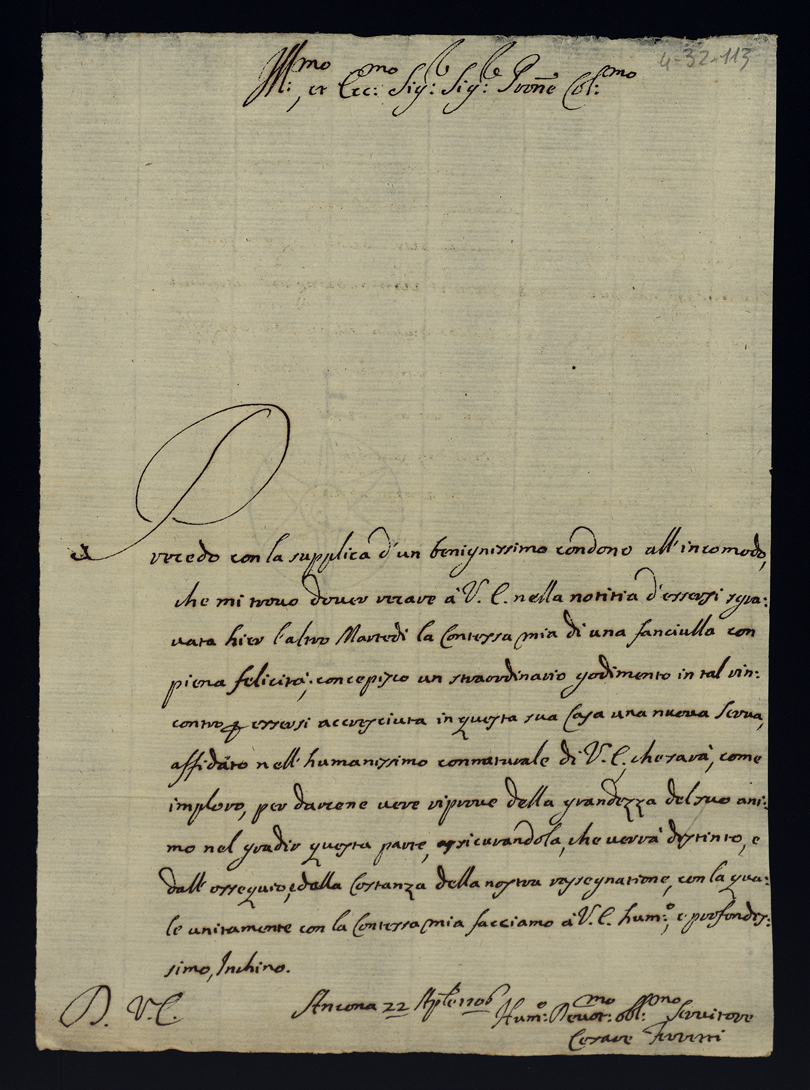 4-32-113
Ill:mo, et Ecc:mo Sig:re Sig:re Prone Col:mo
Precedo con la supplica d'un benignissimo condono all'incomodo,
che mi trovo dover recare à V. E. nella notitia d'essersi sgra:
vata hier l'altro Martedi la Contessa mia di una fanciulla con
piena felicità; concepisco un straordinario godimento in tal rin:
contro p essersi accresciuta in questa sua Casa una nuova Serva,
affidato nell'humanissimo connaturale di V. E., che sarà, come
imploro, per darcene vere riprove della grandezza del suo ani:
mo nel gradir questa parte, assicurandola, che verrà distinto, e
dall'ossequio, e dalla Costanza della nostra rassegnatione, con la qua:
le unitamente con la Contessa mia facciamo à V. E. hum:o, e profondis:
simo, Inchino.
D. V. E.
Ancona 22 Aple 1706
Hum:o Devot:mo obl:mo Servitore
Cesare